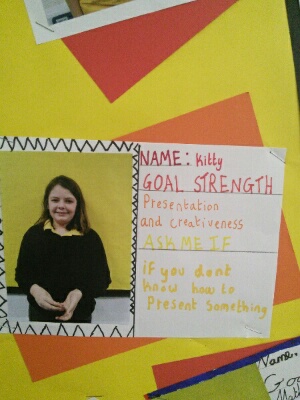 NAME: Kitty
GOAL STRENGTH
Presentation
and creativeness
ASK ME IF
if you dont
know how to
Present something
Name,